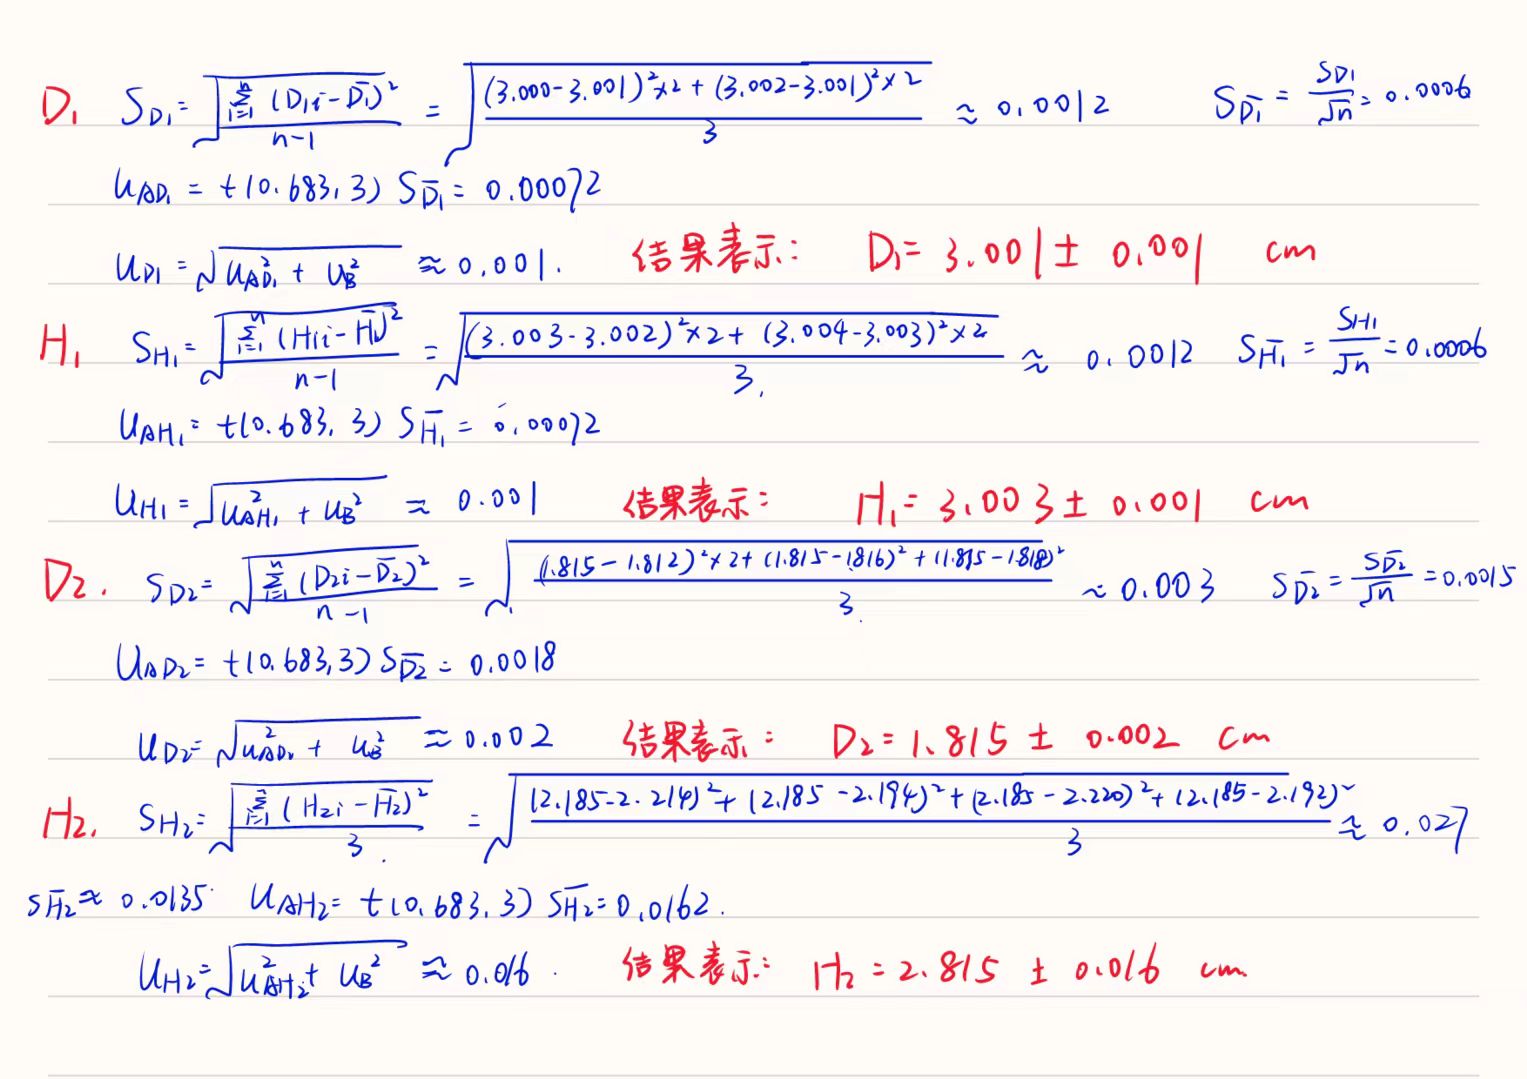 D₁ S_D₁ = √(∑ᵢ₌₁ⁿ (D₁ᵢ - D̄₁)² / (n-1)) = √(((3.000-3.001)²×2 + (3.002-3.001)²×2) / 3) ≈ 0.0012 S_D̄₁ = S_D₁/√n = 0.0006
U_AD₁ = t(0.683, 3) S_D̄₁ = 0.00072
U_D₁ = √(U_AD₁² + U_B²) ≈ 0.001. 结果表示: D₁ = 3.001 ± 0.001 cm
H₁ S_H₁ = √(∑ᵢ₌₁ⁿ (H₁ᵢ - H̄₁)² / (n-1)) = √(((3.003-3.002)²×2 + (3.004-3.003)²×2) / 3.) ≈ 0.0012 S_H̄₁ = S_H₁/√n = 0.0006
U_AH₁ = t(0.683, 3) S_H̄₁ = 0.00072
U_H₁ = √(U_AH₁² + U_B²) ≈ 0.001 结果表示: H₁ = 3.003 ± 0.001 cm
D₂. S_D₂ = √(∑ᵢ₌₁ⁿ (D₂ᵢ - D̄₂)² / (n-1)) = √(((1.815-1.812)²×2 + (1.815-1.816)² + (1.815-1.818)²) / 3.) ≈ 0.003 S_D̄₂ = S_D̄₂/√n = 0.0015
U_AD₂ = t(0.683, 3) S_D̄₂ = 0.0018
U_D₂ = √(U_AD₂² + U_B²) ≈ 0.002 结果表示: D₂ = 1.815 ± 0.002 cm
H₂. S_H₂ = √(∑ᵢ₌₁ⁿ (H₂ᵢ - H̄₂)² / 3.) = √(((2.185-2.214)² + (2.185-2.194)² + (2.185-2.220)² + (2.185-2.192)²) / 3) ≈ 0.027
S_H̄₂ ≈ 0.0135 U_AH₂ = t(0.683, 3) S_H̄₂ = 0.0162.
U_H₂ = √(U_AH₂² + U_B²) ≈ 0.016. 结果表示: H₂ = 2.815 ± 0.016 cm